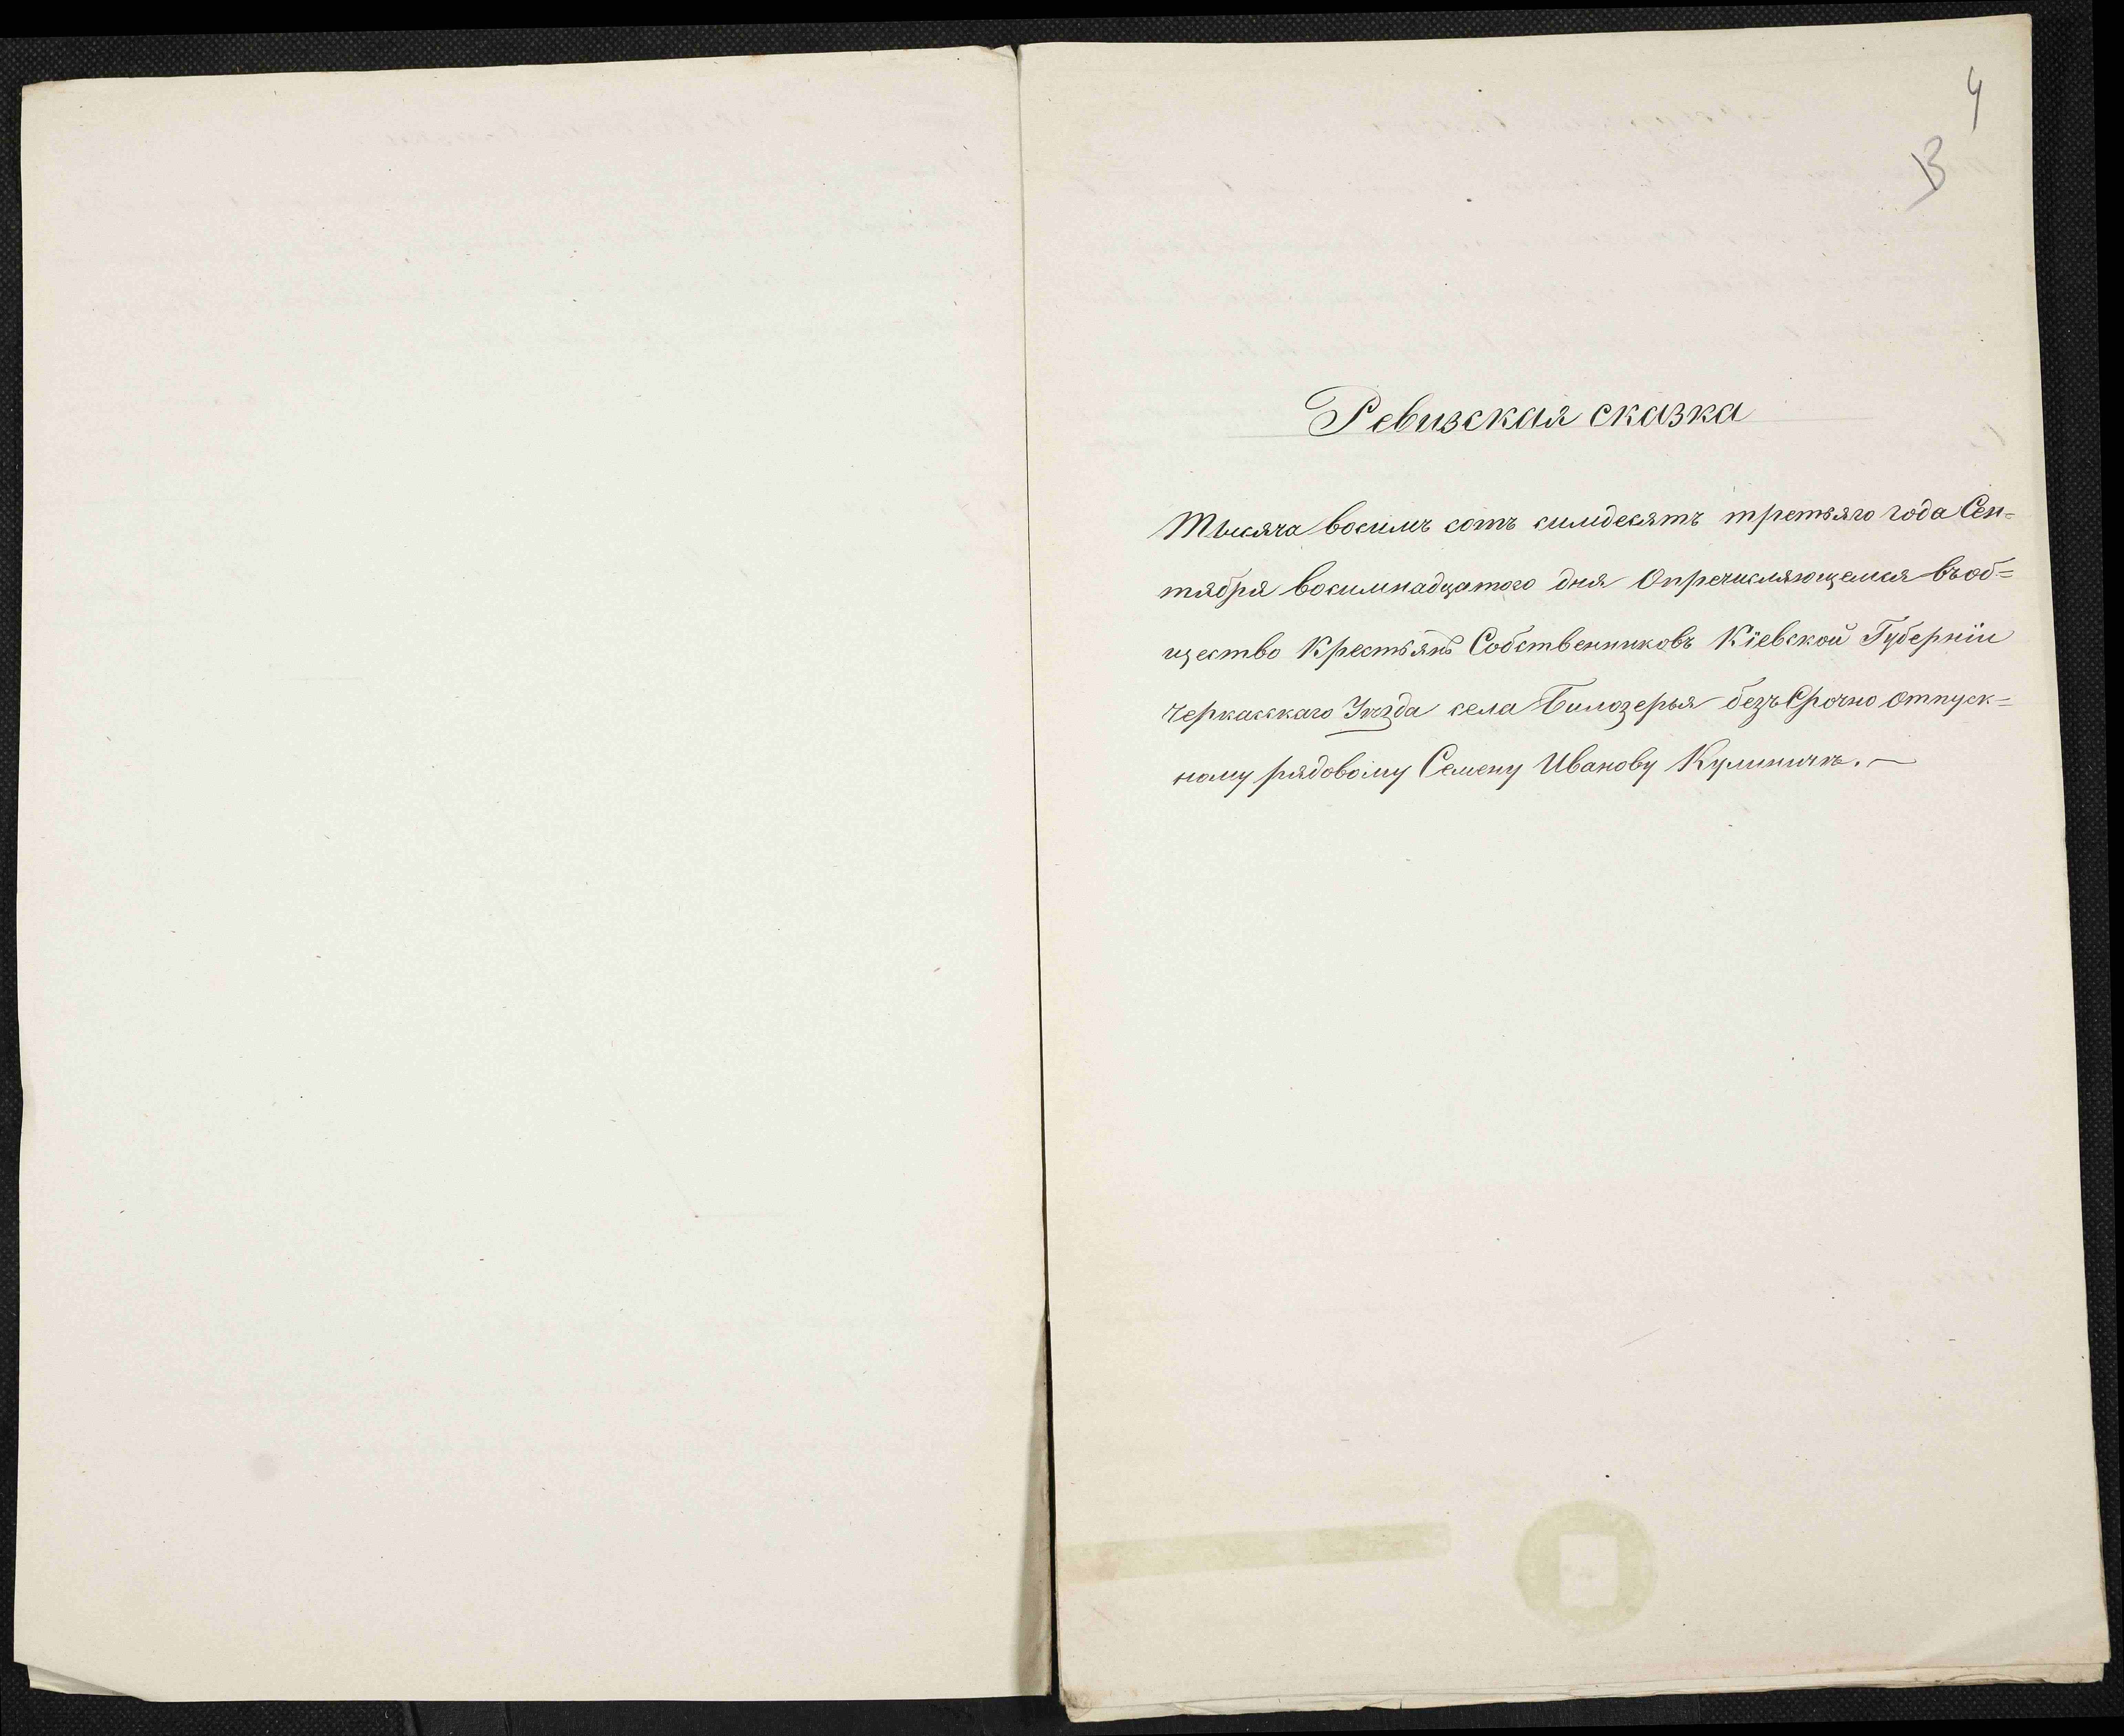 4
13
Ревизская сказка
Тысяча восимъ сотъ симдесятъ третьяго года Сен=
тября восимнадцатого дня Опречисляющемся въ об=
щество Крестьянъ Собственниковъ Кіевской Губерніи
Черкасскаго Уѣзда села Билозерья безъ Срочно отпуск=
ному рядовому Семену Иванову Кулиничѣ. —